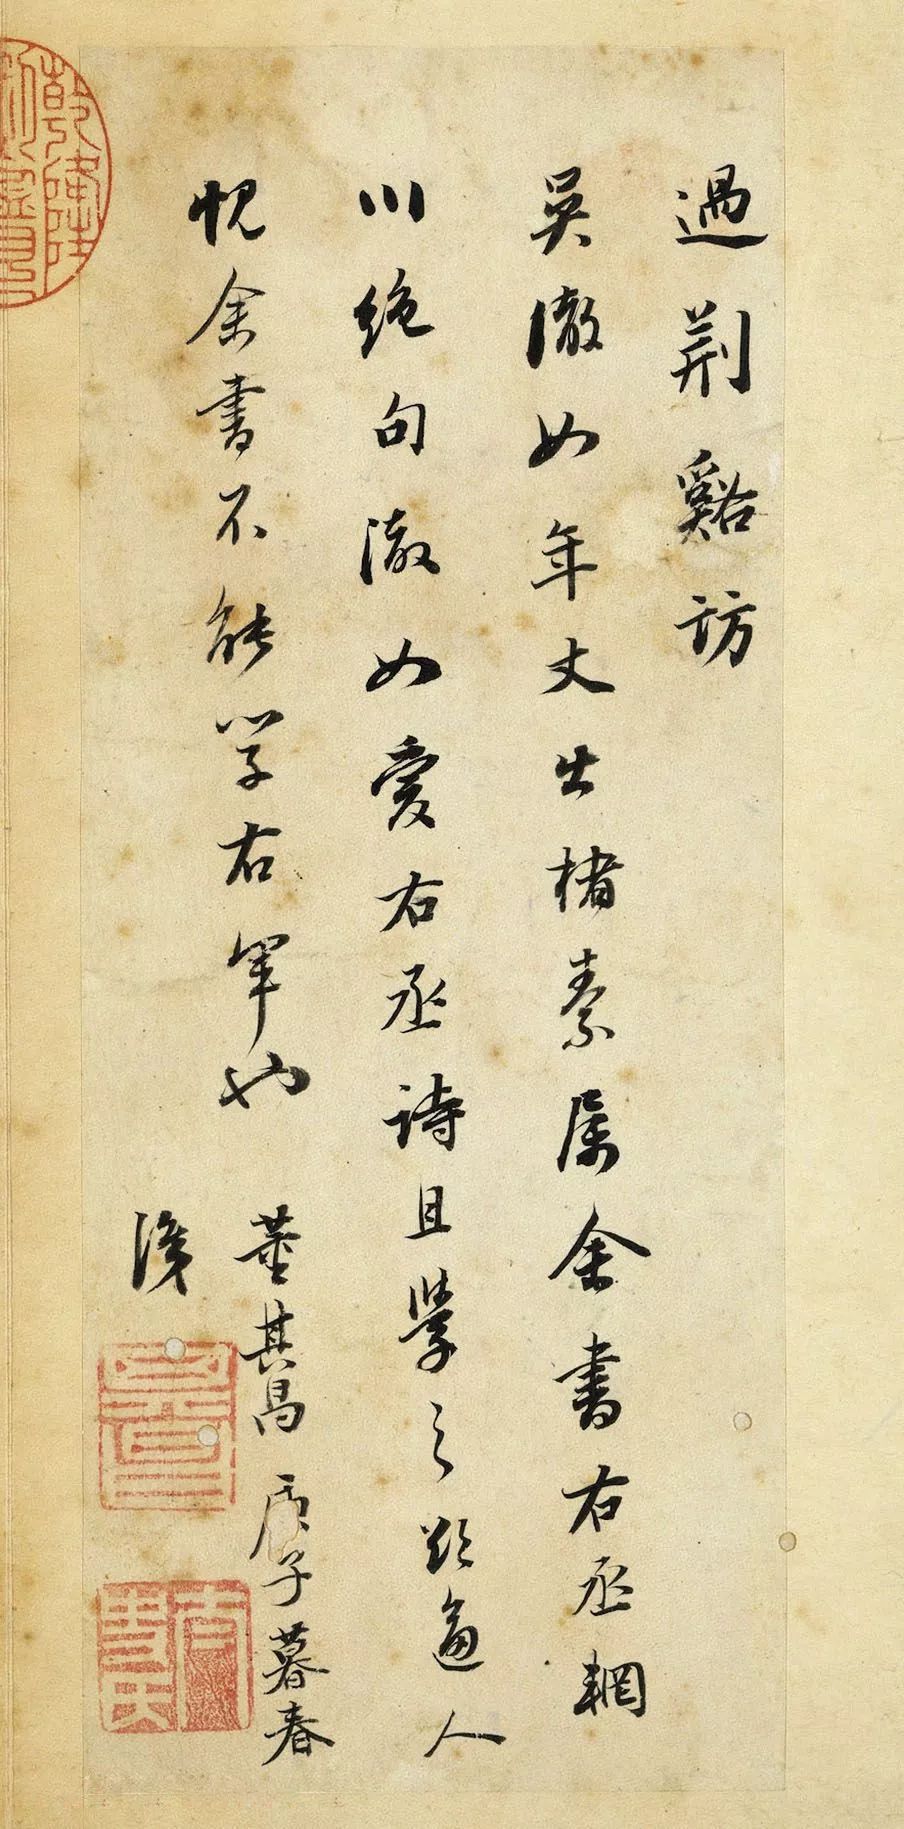 過荆谿訪
吳澈如年丈出楮素属余書右丞輞
川絶句澈如愛右丞詩且學之逼人
余書不能学右軍也
董其昌庚子暮春
乾隆